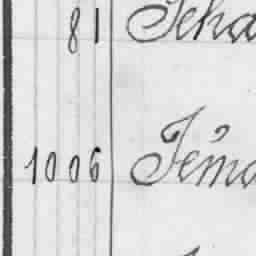 81 Jeha
1006 Jémo